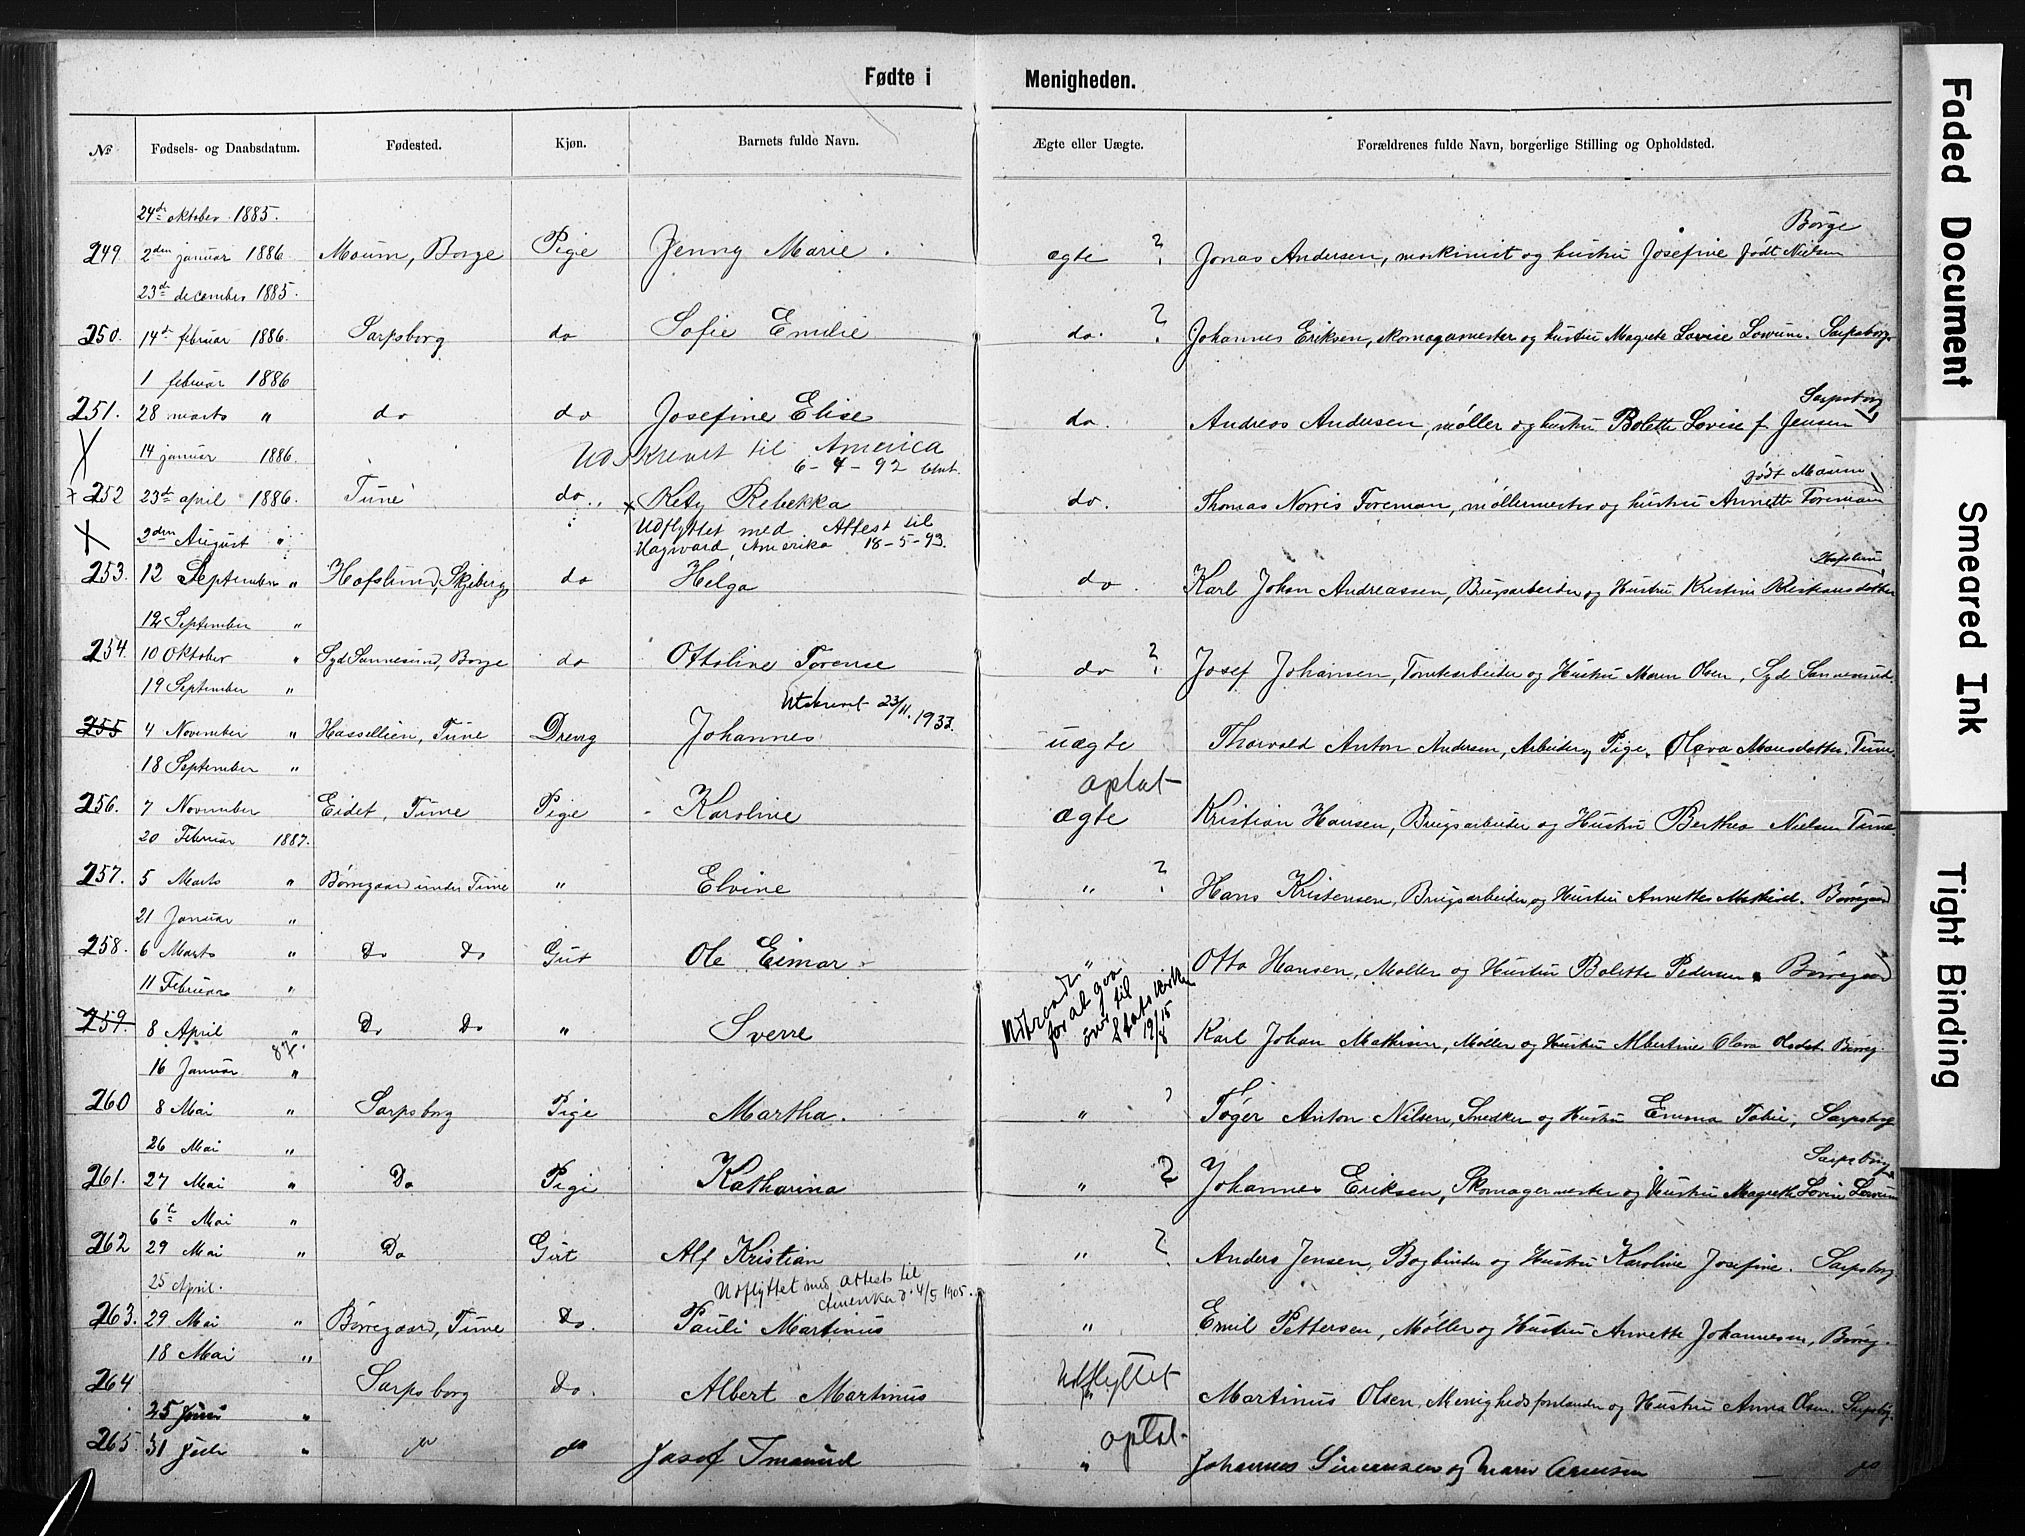 Fødte i Menigheden.
№ Fødsels- og Daabsdatum. Fødested. Kjøn. Barnets fulde Navn. Ægte eller Uægte. Forældrenes fulde Navn, borgerlige Stilling og Opholdsted.
24de oktober 1885. Borge
249 2den januar 1886 Moum, Borge Pige Jenny Marie. ægte ? Jonas Andersen, maskinist og hustru Josefine født Nielsen
23de december 1885.
250. 14de februar 1886. Sarpsborg do Sofie Emilie do. ? Johannes Eriksen, skomagermester og hustru Magrete Lovise Lowum. Sarpsborg.
1 februar 1886 Sarpsborg
251. 28 marts " do do Josefine Elise do. Andreas Andersen, møller og hustru Bolette Lovise f. Jensen
14 januar 1886. Udskrevet til America
6-4-92 født Moum
x 252 23de april 1886. Tune do. x Kety Rebekka do. Thomas Norris Foreman, møllermester og hustru Annette Foreman
2den August " Udflyttet med Attest til
Hayward, Amerika 18-5-93. Hafslund
253. 12 September " Hafslund, Skjeberg do Helga do. Karl Johan Andreassen, Brugsarbeider og Hustru Kristine Kristiansdatter
12 September "
254. 10 Oktober " Syd Sannesund, Borge do Ottoline Torense do ? Josef Johansen, Tomtearbeider og Hustru Maren Olsen, Syd Sannesund.
19 September " Utskrevet 23/11. 1933.
255 4 November " Hassellien, Tune Dreng Johannes uægte Thorvald Anton Andersen, Arbeider, Pige Olava Monsdatter. Tune.
18 September " optat
256. 7 November Eidet, Tune Pige Karoline ægte Kristian Hansen, Brugsarbeider og Hustru Berthea Nielsen Tune.
20 Februar 1887.
257. 5 Marts " Børregaard under Tune " Elvine " ? Hans Kristensen, Brugsarbeider og Hustru Annette Mathisd. Børregaard
21 Januar "
258. 6 Marts " Do Do Gut Ole Eimar " Otto Hansen, Møller og Hustru Bolette Pedersen. Børregaard
11 Februar "
Udtraadt for at gaa over til Statskirken 19/8 15
259. 8 April " Do Do " Sverre Karl Johan Mathisen, Møller og Hustru Albertine Olava Olsdat. Børreg.
16 Januar 87. "
260 8 Mai " Sarpsborg Pige Martha. " ? Tøger Anton Nilsen, Snedker og Hustru Emma Tobie, Sarpsborg
26 Mai " Sarpsborg
261. 27 Mai " Do Pige Katharina " ? Johannes Eriksen, Skomagermester og Hustru Magrethe Lovise Lowum
6te Mai "
262 29 Mai " Do Gut Alf Kristian " ? Anders Jensen, Bogbinder og Hustru Karoline Josefine. Sarpsborg.
25 April. Udflyttet med attests til
Amerika d. 4/5 1905.
263. 29 Mai " Børregaard, Tune Do. Pauli Martinus " Emil Pettersen, Møller og Hustru Annette Johannesen, Børreg.
18 Mai " Udflyttet
264 Sarpsborg Do. Albert Martinus " Martinus Olsen, Menighedsforstander og Hustru Anna Olsen. Sarpsbg.
25 Juni " optat.
265. 31 Juli " do do Josef Imanuel " Johannes Simensen og Maria Arnesen — do
Faded Document
Smeared Ink
Tight Binding